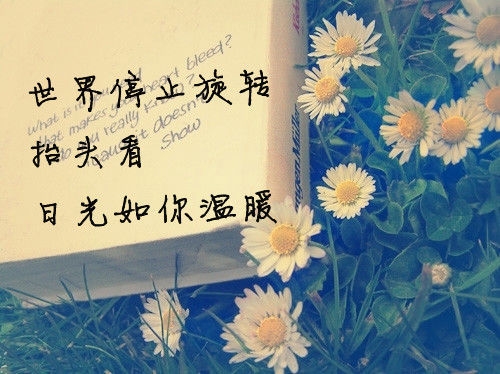 世界停止旋转
抬头看
日光如你温暖
what is
that makes your heart bleed?
do you really know?
it doesn't
show